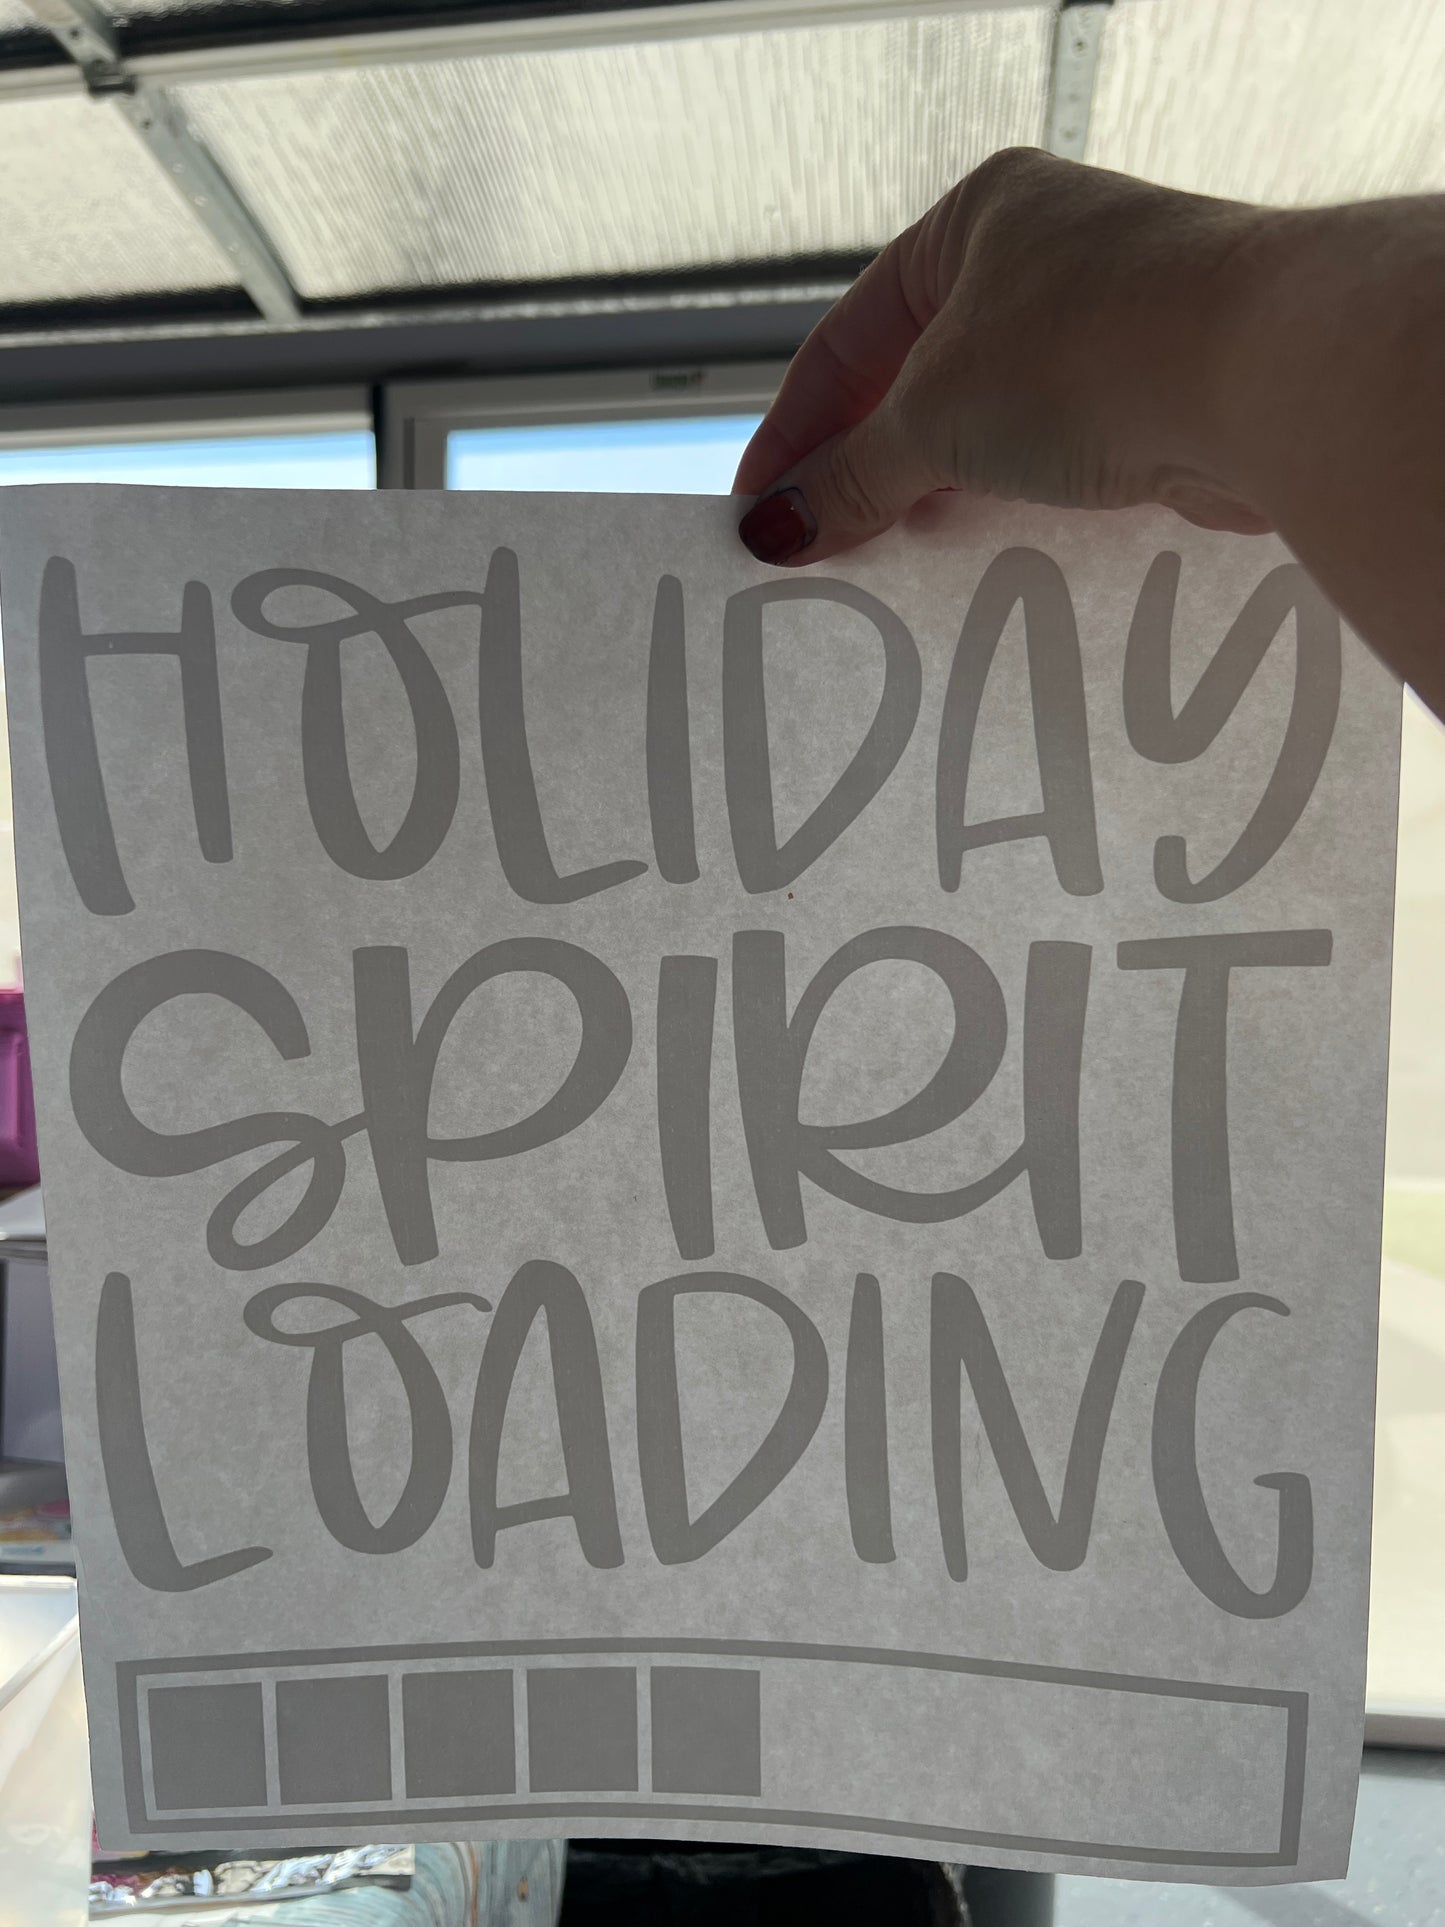 HOLIDAY
SPIRIT
LOADING